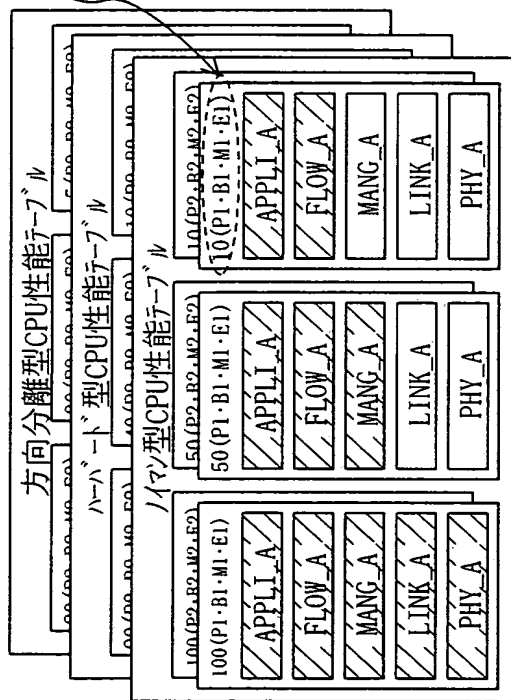 方向分離型CPU性能テーブル
ハーバード型CPU性能テーブル
ノイマン型CPU性能テーブル
100(P2·B2·M2·E2)
100(P1·B1·M1·E1)
APPLI_A
FLOW_A
MANG_A
LINK_A
PHY_A
50(P2·B2·M2·E2)
50(P1·B1·M1·E1)
APPLI_A
FLOW_A
MANG_A
LINK_A
PHY_A
10(P2·B2·M2·E2)
10(P1·B1·M1·E1)
APPLI_A
FLOW_A
MANG_A
LINK_A
PHY_A